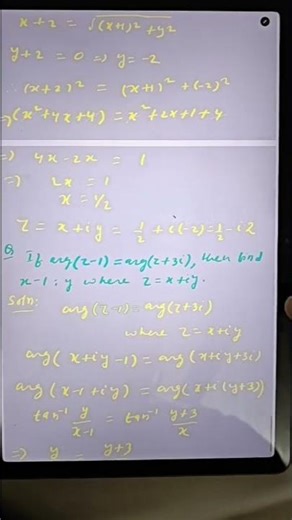 x+2 = √(x+1)² + y²
y+2 = 0 ⇒ y = -2
∴ (x+2)² = (x+1)² + (-2)²
⇒ (x²+4x+4) = x²+2x+1+4
⇒ 4x-2x = 1
⇒ 2x = 1
x = 1/2
Z = x+iy = 1/2 + i(-2) = 1/2 - i2
Q If arg(z-1) = arg(z+3i), then find
x-1 : y where z = x+iy.
Soln: arg(z-1) = arg(z+3i)
where z = x+iy
arg(x+iy-1) = arg(x+iy+3i)
arg(x-1+iy) = arg(x+i(y+3))
tan⁻¹ y/x-1 = tan⁻¹ y+3/x
⇒ y = y+3